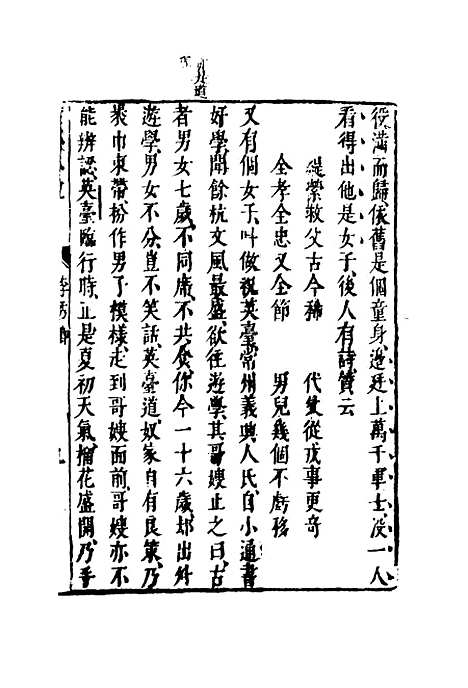 役滿而歸依舊是個童身邊廷上萬千軍士没一人
看得出他是女子後人有詩贊云
緹縈救父古今稀　代父從戎事更奇
全孝全忠又全節　男兒幾個不虧移
又有個女子叫做祝英臺常州義興人氏自小通書
好學聞餘杭文風最盛欲往遊學其哥嫂止之曰古
者男女七歲不同席不共食你今一十六歲却出外
遊學男女不分豈不笑話英臺道奴家自有良策乃
裹巾束帶扮作男子模樣走到哥嫂面前哥嫂亦不
能辨認英臺臨行時正是夏初天氣榴花盛開乃手